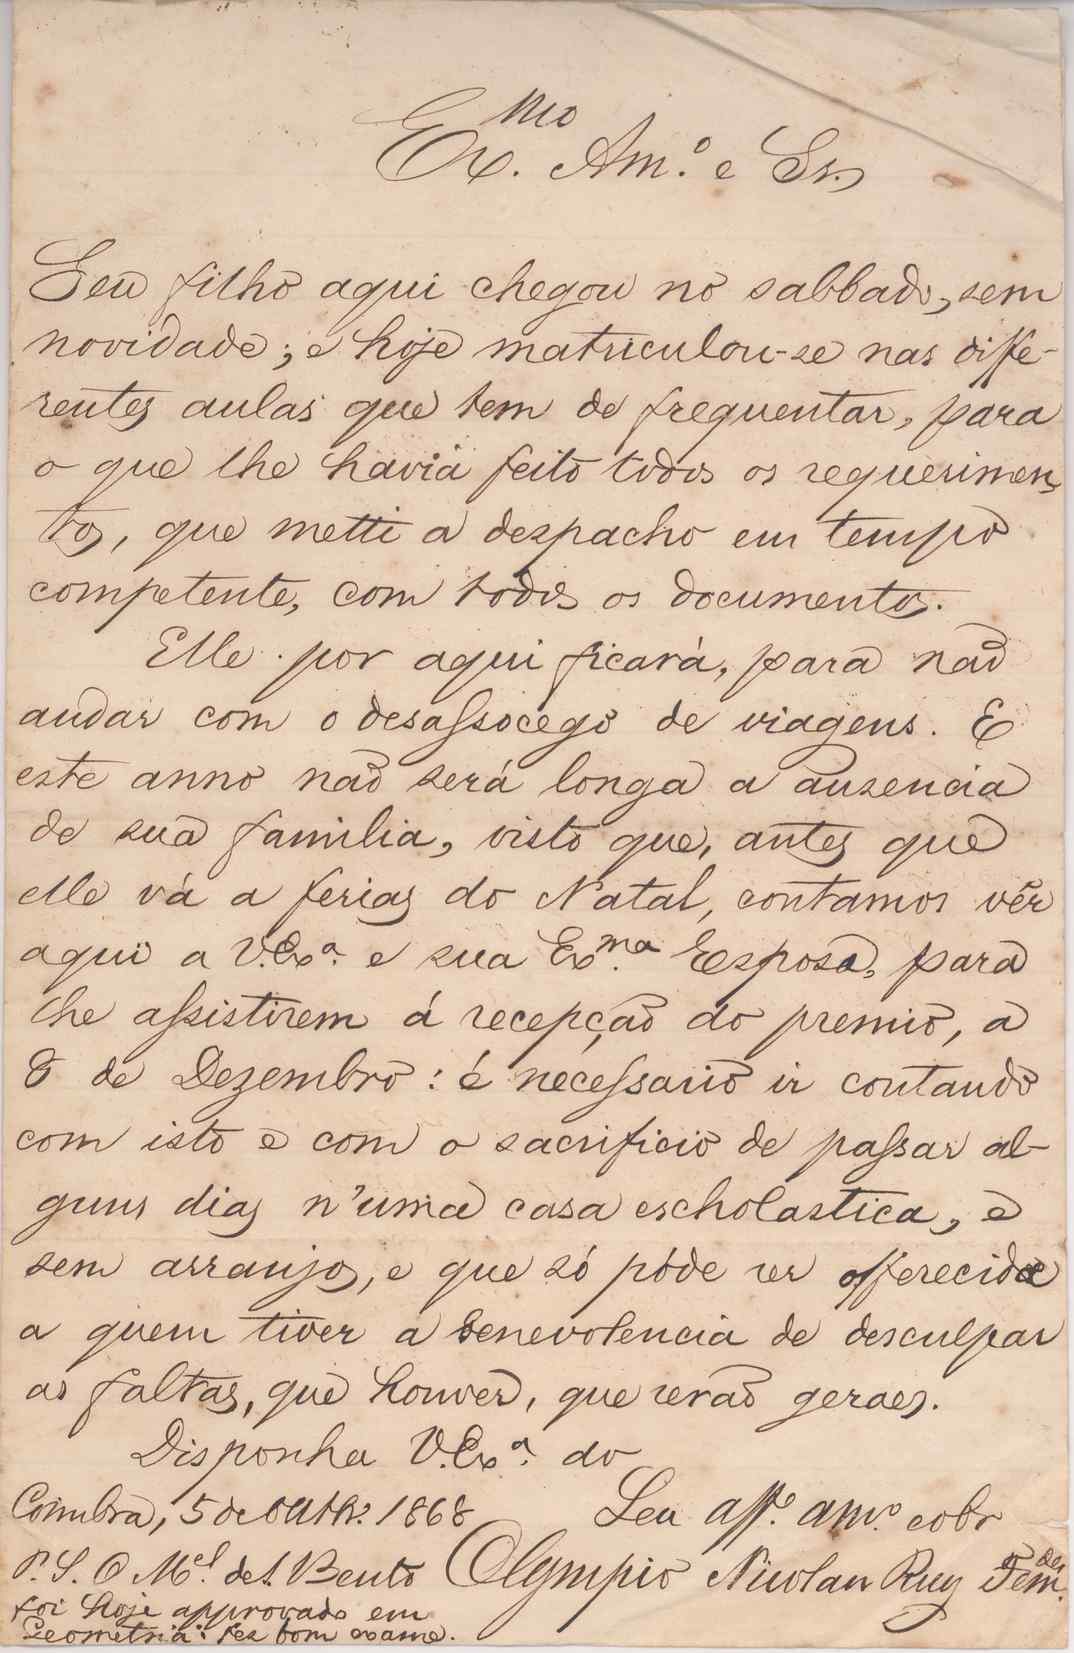 Ex.mo Am.º e Sr.
Seu filho aqui chegou no sabbado, sem
novidade; e hoje matriculou-se nas diffe-
rentes aulas que tem de frequentar, para
o que lhe havia feito todos os requerimen-
tos, que metti a despacho em tempo
competente, com todos os documentos.
Elle por aqui ficará, para não
andar com o desassocego de viagens. E
este anno não será longa a ausencia
de sua familia, visto que, antes que
elle vá a ferias do Natal, contamos vêr
aqui a V.Exª. e sua Ex.ma Esposa, para
lhe assistirem á recepção do premio, a
8 de Dezembro: é necessario ir contando
com isto e com o sacrificio de passar al-
guns dias n'uma casa escholastica, e
sem arranjos, e que só póde ser offerecida
a quem tiver a benevolencia de desculpar
as faltas, que houver, que serão geraes.
Disponha V.Exª. do
Coimbra, 5 de Outbr.º 1868
Seu aff.º am.º e obr
P.S. O M.el de S. Bento
Olympio Nicolau Ruy Fern.des
foi hoje approvado em
Geometria: fez bom exame.